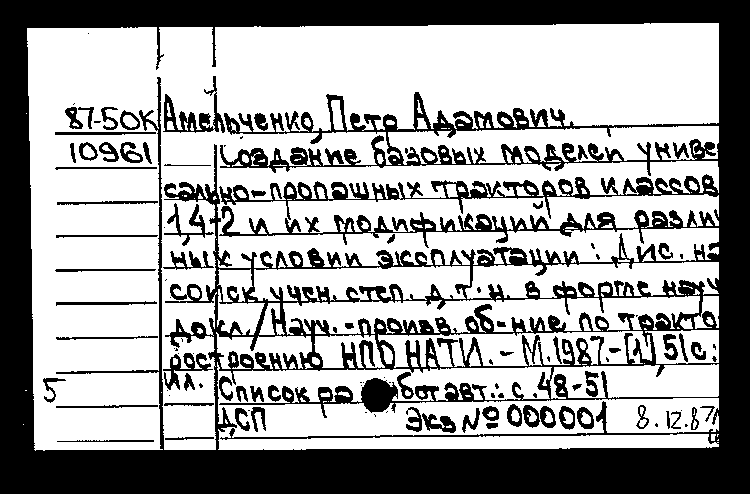 87-50К Амельченко, Петр Адамович.
10961 Создание базовых моделей универ
сально-пропашных тракторов классов
1,4-2 и их модификаций для различ
ных условий эксплуатации: Дис. на
соиск. учен. степ. д.т.н. в форме науч
докл./Науч.-произв. об-ние по тракто
ростроению НПО НАТИ. - М.1987.-[1],51с.:
ил.
5 Список работ авт.: с. 48-51
ДСП Экз № 000001 8.12.87